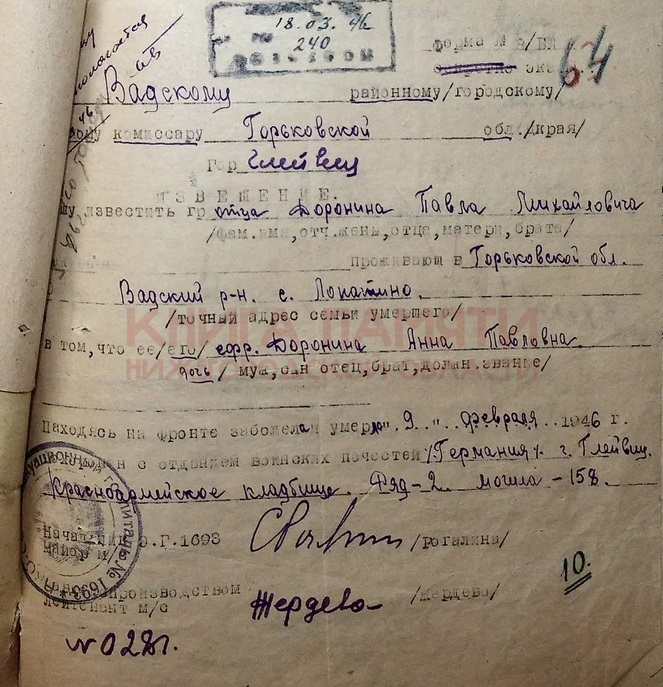 18.03.46
240
форма № 8/БЛ
64
Вадскому районному/городскому/
комиссару Горьковской обл./края/
Гор Глейвиц
ИЗВЕЩЕНИЕ.
известить гр отца Доронина Павла Михайловича
/фам.имя,отч.жены,отца,матери,брата/
проживающ в Горьковской обл.
Вадский р-н. с. Лопатино.
/точный адрес семьи умершего/
КНИГА ПАМЯТИ
в том,что ее/его/ ефр. Доронина Анна Павловна
НИЖЕГОРОДСКОЙ ОБЛАСТИ
дочь/ муж,сын отец,брат,должн.звание/
Находясь на фронте заболела и умерла "9" февраля 1946 г.
с отданием воинских почестей /Германия/ г. Глейвиц
Красноармейское кладбище. Ряд-2 могила-158
Начальник э.Г.1693
майор м/с /Рогалина/
10.
производством
лейтенант м/с Жердева /Жердева/
№ 028г.